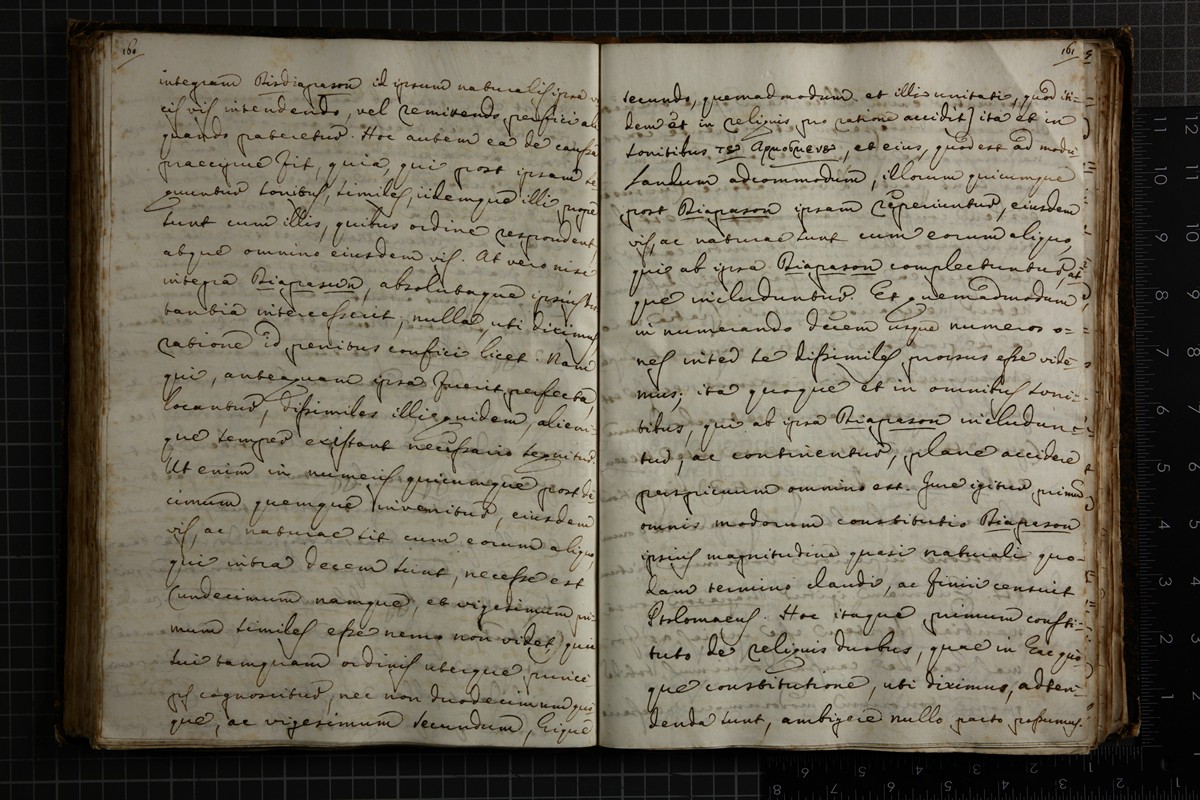 160
integram Bisdiapason id ipsum naturalis ipsa
cis vis intendendo, vel remittendo perfici ali
quando pateretur. Hoc autem ea de caussa
praecipue fit, quia, qui post ipsam se
quuntur sonitus, similes, iidemque illi prope
sunt cum illis, quibus ordine respondent,
atque omnino eiusdem vis. At vero nisi
integra Diapason, absolutaque ipsius
tantia intercesserit, nulla, uti diximus
ratione id penitus confici licet. Nam
qui, antequam ipsa fuerit perfecta,
locantur, dissimiles illi quidem, alieni-
que semper existant necessario sequitur.
Ut enim in numeris quicumque post de-
cimum quemque invenitur, eiusdem
vis, ac naturae sit cum eorum aliquo,
qui intra decem sunt, necesse est
(undecimum namque, et vigesimum pri-
mum similes esse nemo non videt, qui
sui tamquam ordinis uterque princi-
ps cognoscitur, nec non duodecimum quo
que, ac vigesimum secundum, hique
161
secundo, quemadmodum et illi unitati, quod iti-
dem et in reliquis pro ratione accidit) ita et in
sonitibus , et eius, quod est ad modu-
landum adcommodum, illorum quicumque
post Diapason ipsam reperiuntur, eiusdem
vis, ac naturae sunt cum eorum aliquo,
qui ab ipsa Diapason complectuntur, at-
que includuntur. Et quemadmodum
in numerando decem usque numeros o-
nes inter se dissimiles prorsus esse vide-
mus; ita quoque et in omnibus soni-
tibus, qui ab ipsa Diapason includun-
tur, ac continentur, plane accidere
perspicuum omnino est. Jure igitur primum
omnis modorum constitutio Diapason
ipsius magnitudine quasi naturali quo-
dam termino claudi, ac finiri censuit
Ptolomaeus. Hoc itaque primum consti-
tuto de reliquis duobus, quae in hac quo-
que constitutione, uti diximus, adten-
denda sunt, ambigere nullo pacto possumus.